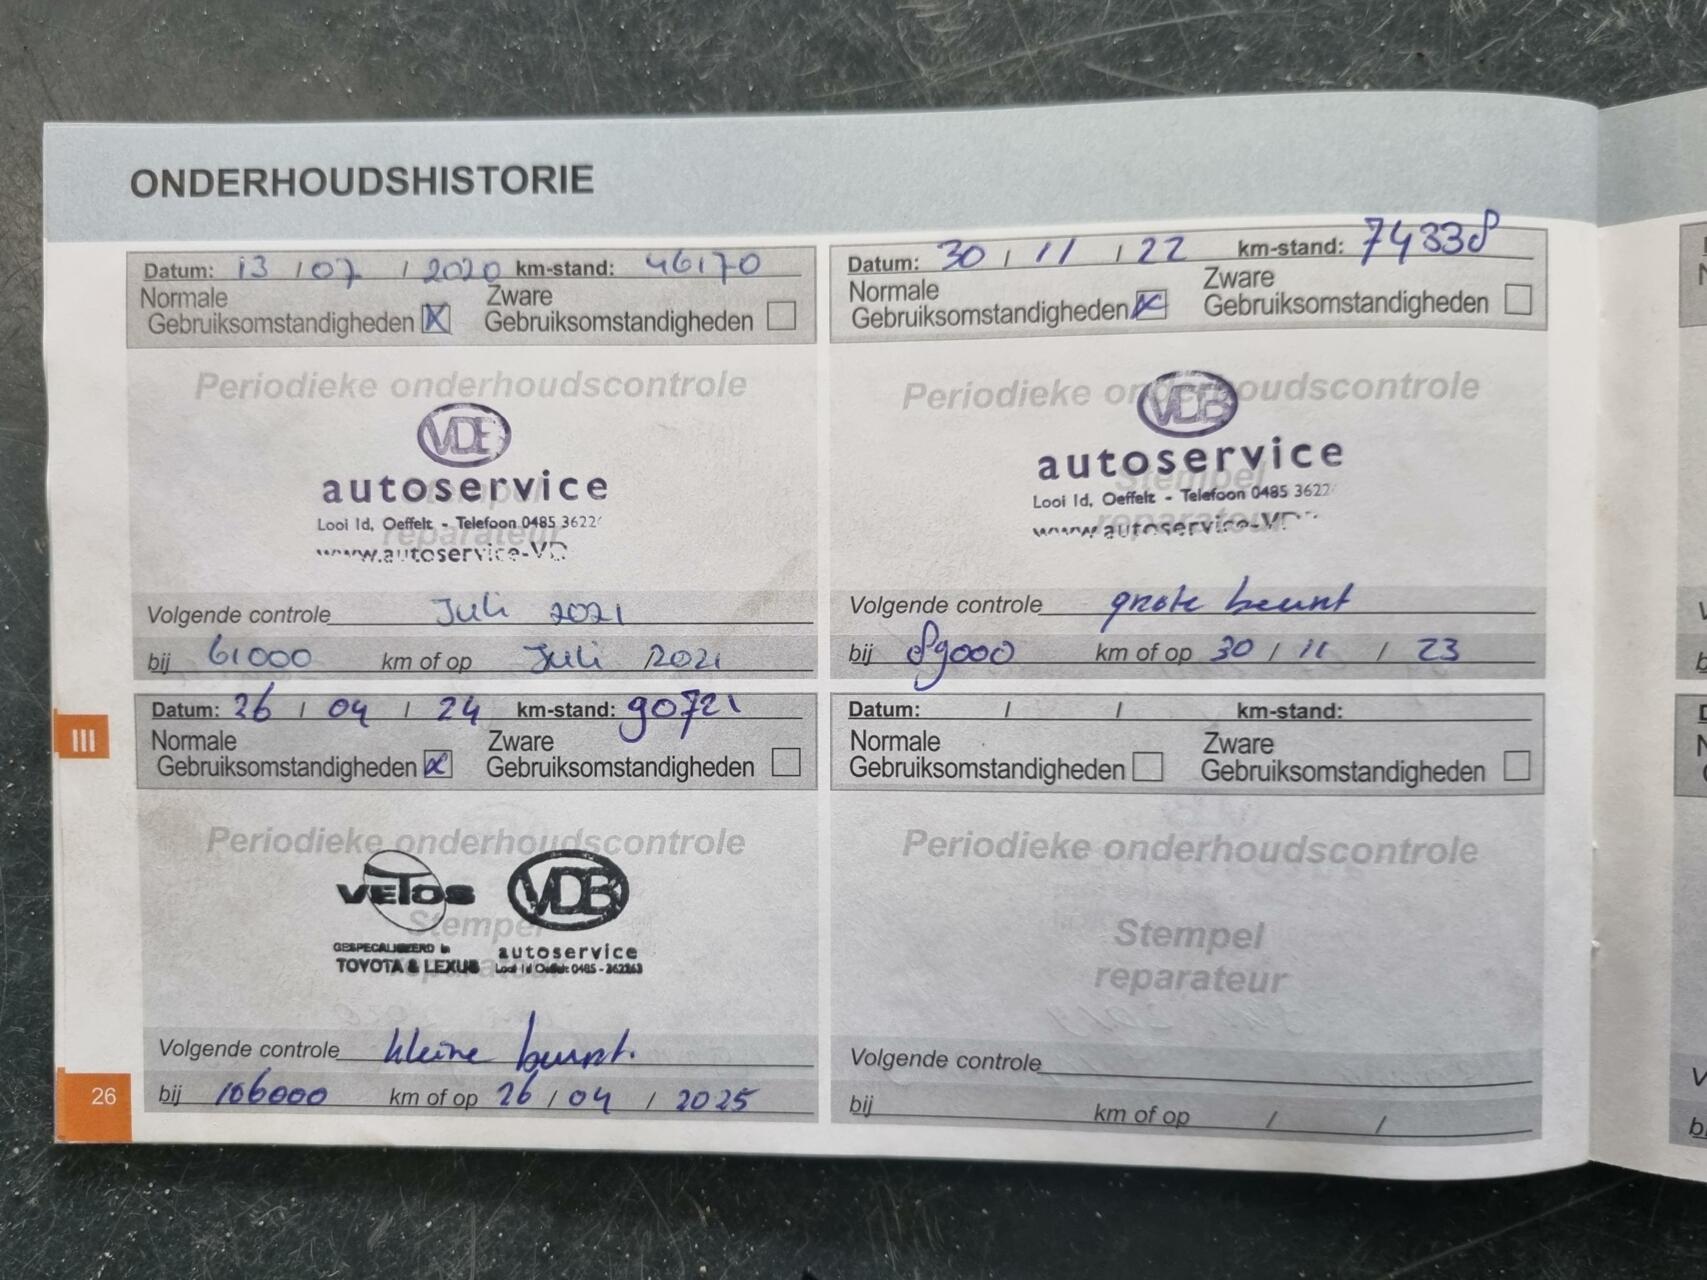 ONDERHOUDSHISTORIE
Datum: 13 / 07 / 2020 km-stand: 46170
Normale Zware
Gebruiksomstandigheden X Gebruiksomstandigheden
Periodieke onderhoudscontrole
VDB
autoservice
Stempel
Looi 1d, Oeffelt - Telefoon 0485 3622
reparateur
www.autoservice-VD
Volgende controle Juli 2021
bij 61000 km of op Juli /2021
Datum: 30 / 11 / 22 km-stand: 74338
Normale Zware
Gebruiksomstandigheden X Gebruiksomstandigheden
Periodieke onderhoudscontrole
VDB
autoservice
Stempel
Looi 1d, Oeffelt - Telefoon 0485 3622
reparateur
www.autoservice-VD
Volgende controle grote beurt
bij 89000 km of op 30 / 11 / 23
III
Datum: 26 / 04 / 24 km-stand: 90721
Normale Zware
Gebruiksomstandigheden X Gebruiksomstandigheden
Periodieke onderhoudscontrole
VETOS VDB
Stempel
GESPECIALISEERD in autoservice
TOYOTA & LEXUS Looi 1d Oeffelt 0485 - 362263
reparateur
Volgende controle kleine beurt.
bij 106000 km of op 26 / 04 / 2025
Datum: / / km-stand:
Normale Zware
Gebruiksomstandigheden Gebruiksomstandigheden
Periodieke onderhoudscontrole
Stempel
reparateur
Volgende controle
bij km of op / /
26